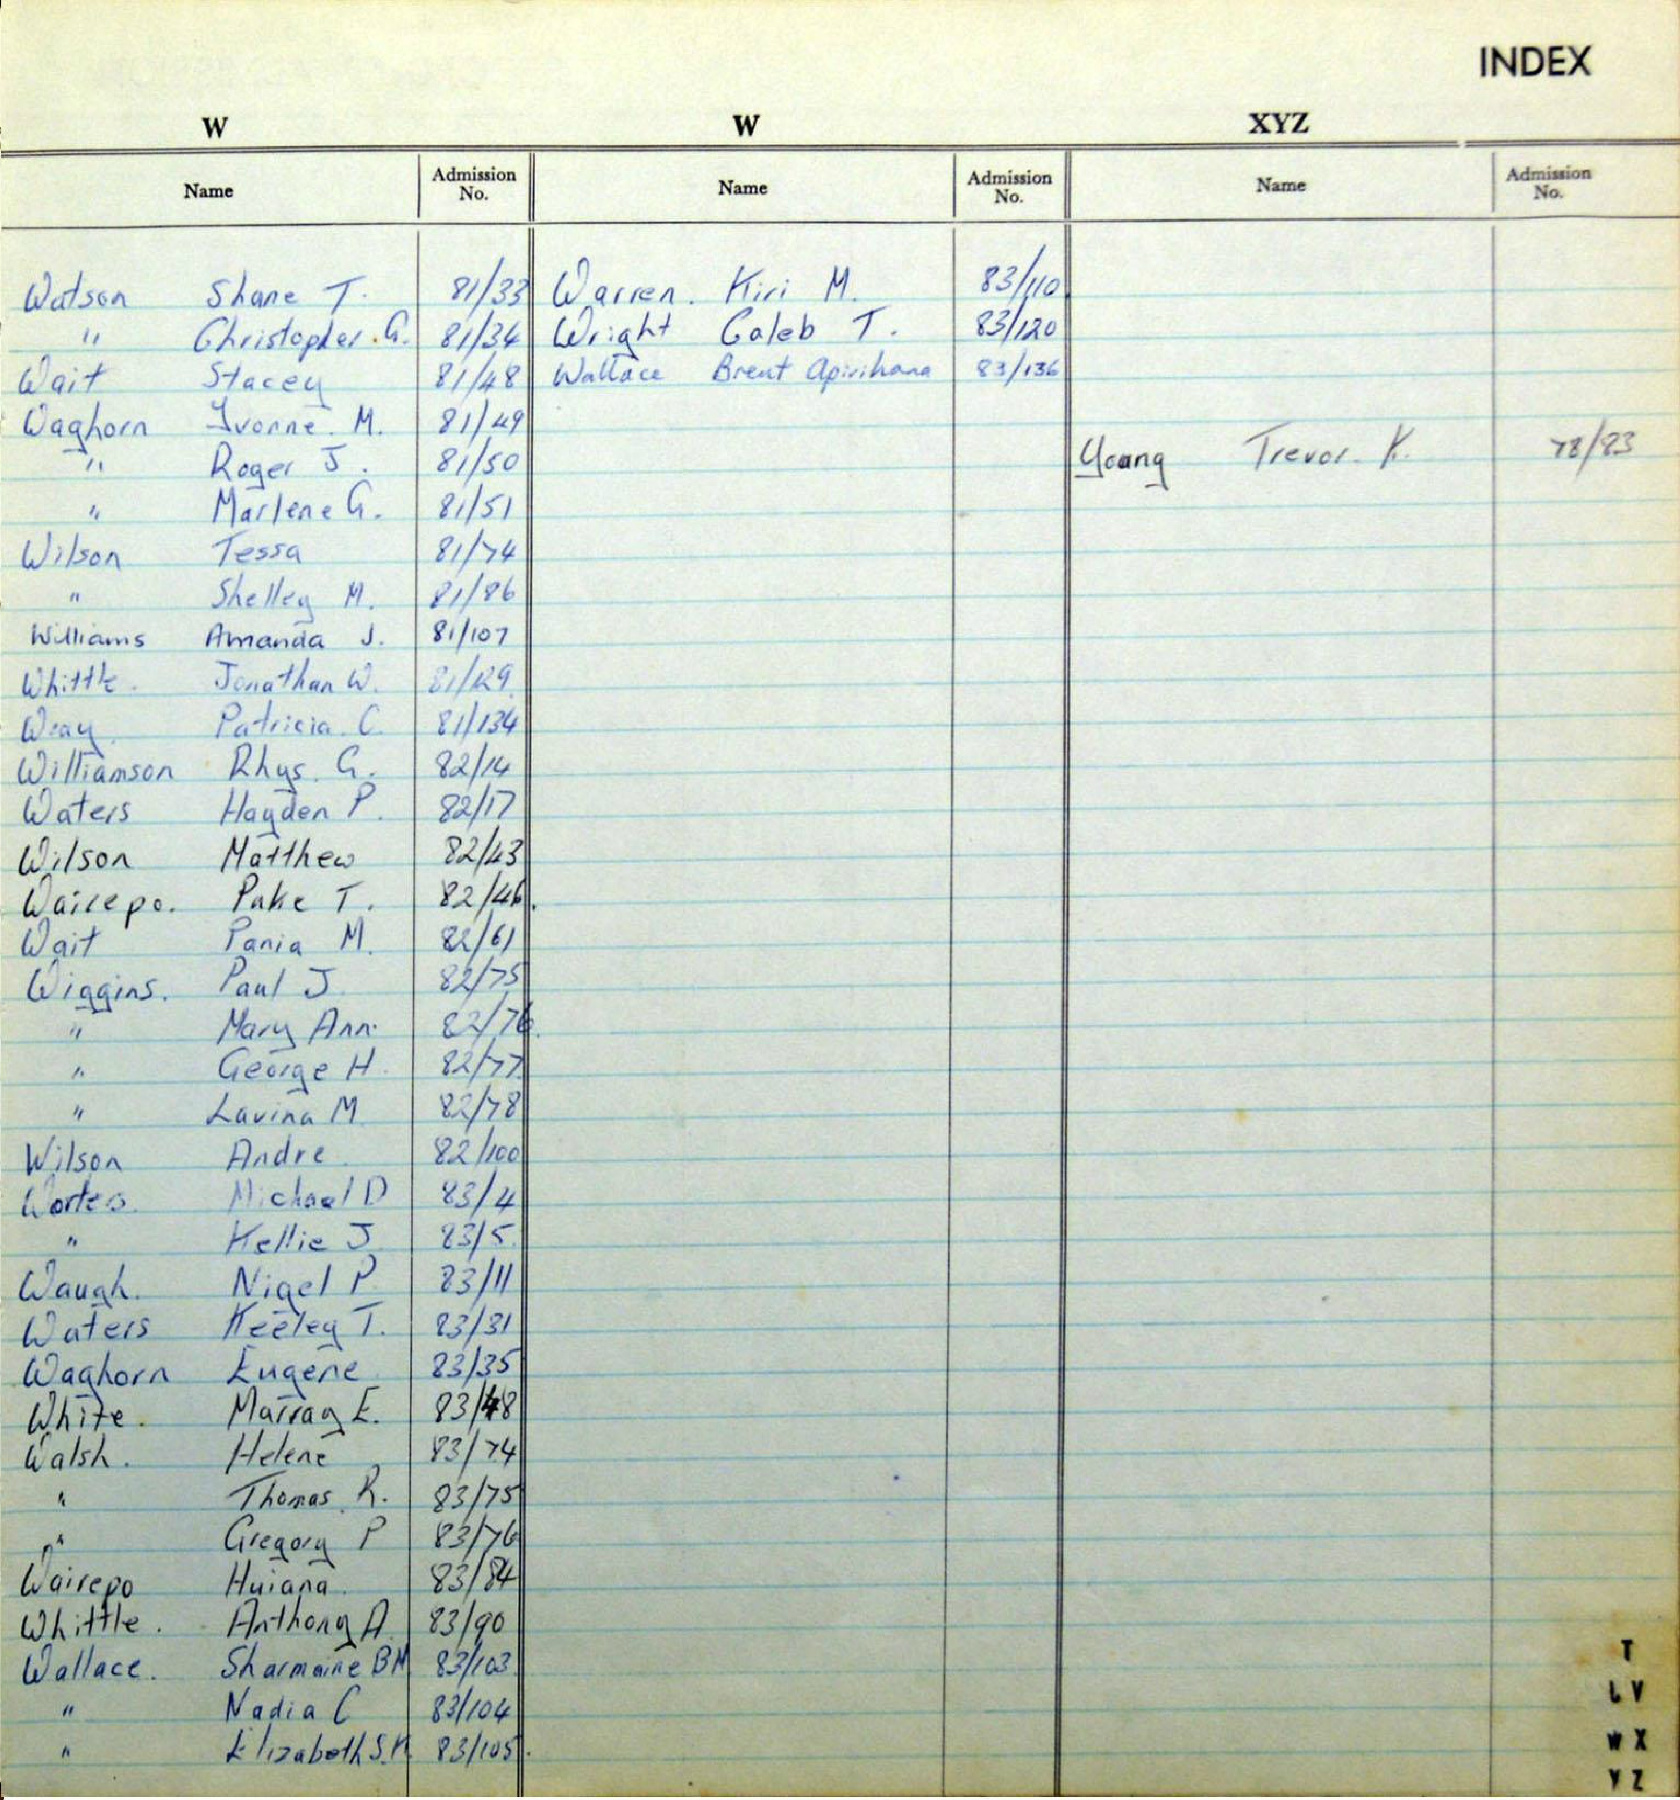 INDEX
W W XYZ
Name Admission No. Name Admission No. Name Admission No.
Watson Shane T. 81/33
" Christopher. G. 81/34
Wait Stacey 81/48
Waghorn Yvonne. M. 81/49
" Roger J. 81/50
" Marlene G. 81/51
Wilson Tessa 81/74
" Shelley M. 81/86
Williams Amanda J. 81/107
Whittle. Jonathan W. 81/129
Wray Patricia. C. 81/134
Williamson Rhys. G. 82/14
Waters Hayden P. 82/17
Wilson Matthew 82/43
Wairepo. Puke T. 82/46.
Wait Pania M. 82/61
Wiggins. Paul J. 82/75
" Mary Ann. 82/76.
" George H. 82/77
" Lavina M. 82/78
Wilson Andre 82/100
Worters. Michael D 83/4
" Kellie J 83/5.
Waugh. Nigel P. 83/11
Waters Keeley T. 83/31
Waghorn Eugene 83/35
White. Murray E. 83/48
Walsh. Helene 83/74
" Thomas R. 83/75
" Gregory P 83/76
Wairepo Huiana. 83/84
Whittle. Anthony A. 83/90
Wallace. Sharmaine BM 83/103.
" Nadia C 83/104
" Elizabeth 83/105.
Warren. Kiri M. 83/110
Wright Caleb T. 83/120
Wallace Brent Apirihana 83/136
Young Trevor K. 78/83
T
L V
W X
Y Z